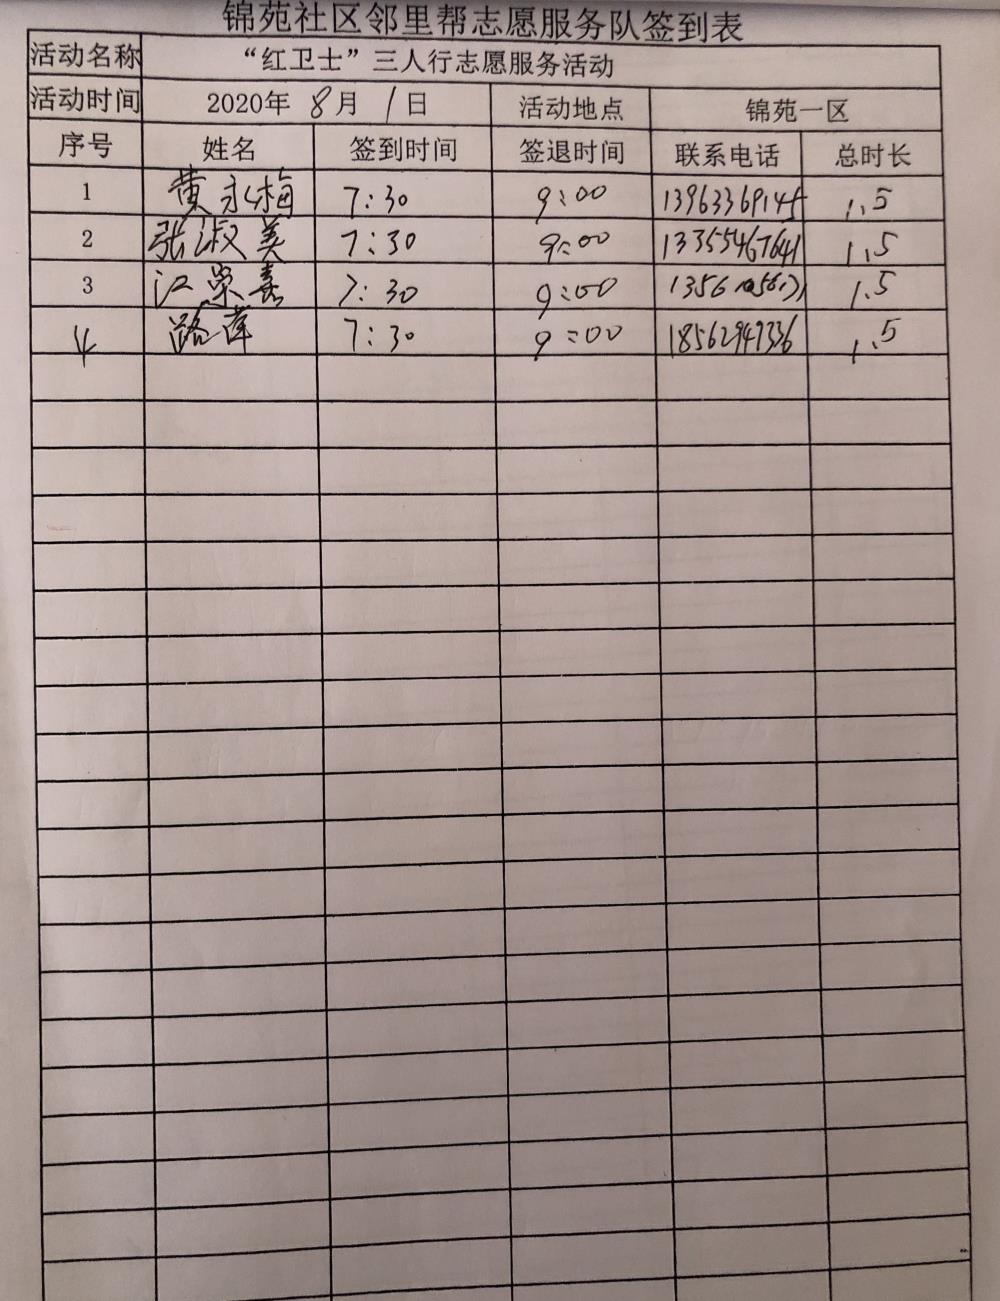 锦苑社区邻里帮志愿服务队签到表
活动名称 “红卫士”三人行志愿服务活动
活动时间 2020年 8月 1日 活动地点 锦苑一区
序号 姓名 签到时间 签退时间 联系电话 总时长
1 黄永梅 7:30 9:00 13963369145 1.5
2 张淑美 7:30 9:00 13355467641 1.5
3 7:30 9:00 1.5
4 路萍 7:30 9:00 18562947336 1.5